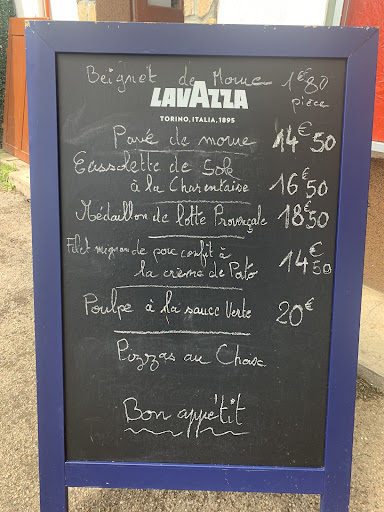 Beignet de Morue 1€80
pièce
LAVAZZA
TORINO, ITALIA, 1895
Pavé de morue 14€50
Cassolette de Sole
à la Charentaise 16€50
Médaillon de lotte Provençale 18€50
Filet mignon de porc confit à
la crème de Porto 14€50
Poulpe à la sauce Verte 20€
Pizzas au Choix
Bon appétit